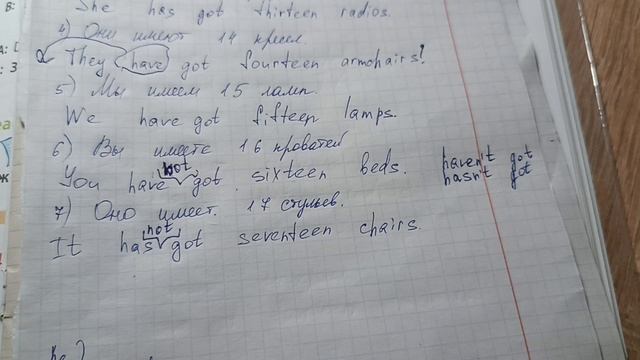 She has got thirteen radios.
4) Они имеют 14 кресел.
They have got fourteen armchairs!
5) Мы имеем 15 ламп.
We have got fifteen lamps.
6) Вы имеете 16 кроватей
not
You have got sixteen beds. haven't got
hasn't got
7) Оно имеет. 17 стульев.
not
It has got seventeen chairs.